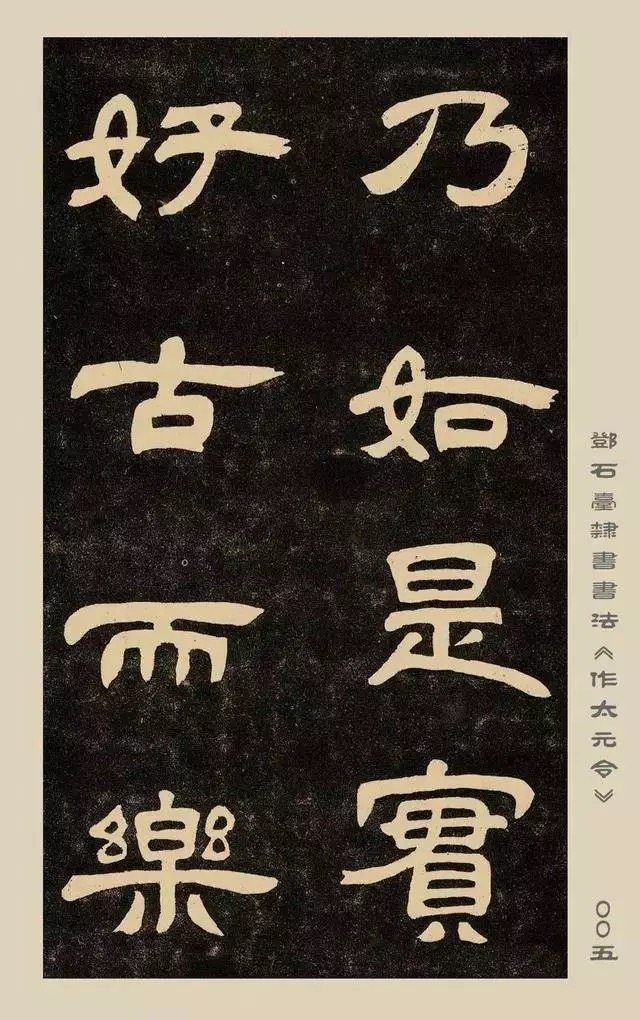 乃如是實
好古而樂
鄧石臺隸書書法《作太元令》
〇〇五